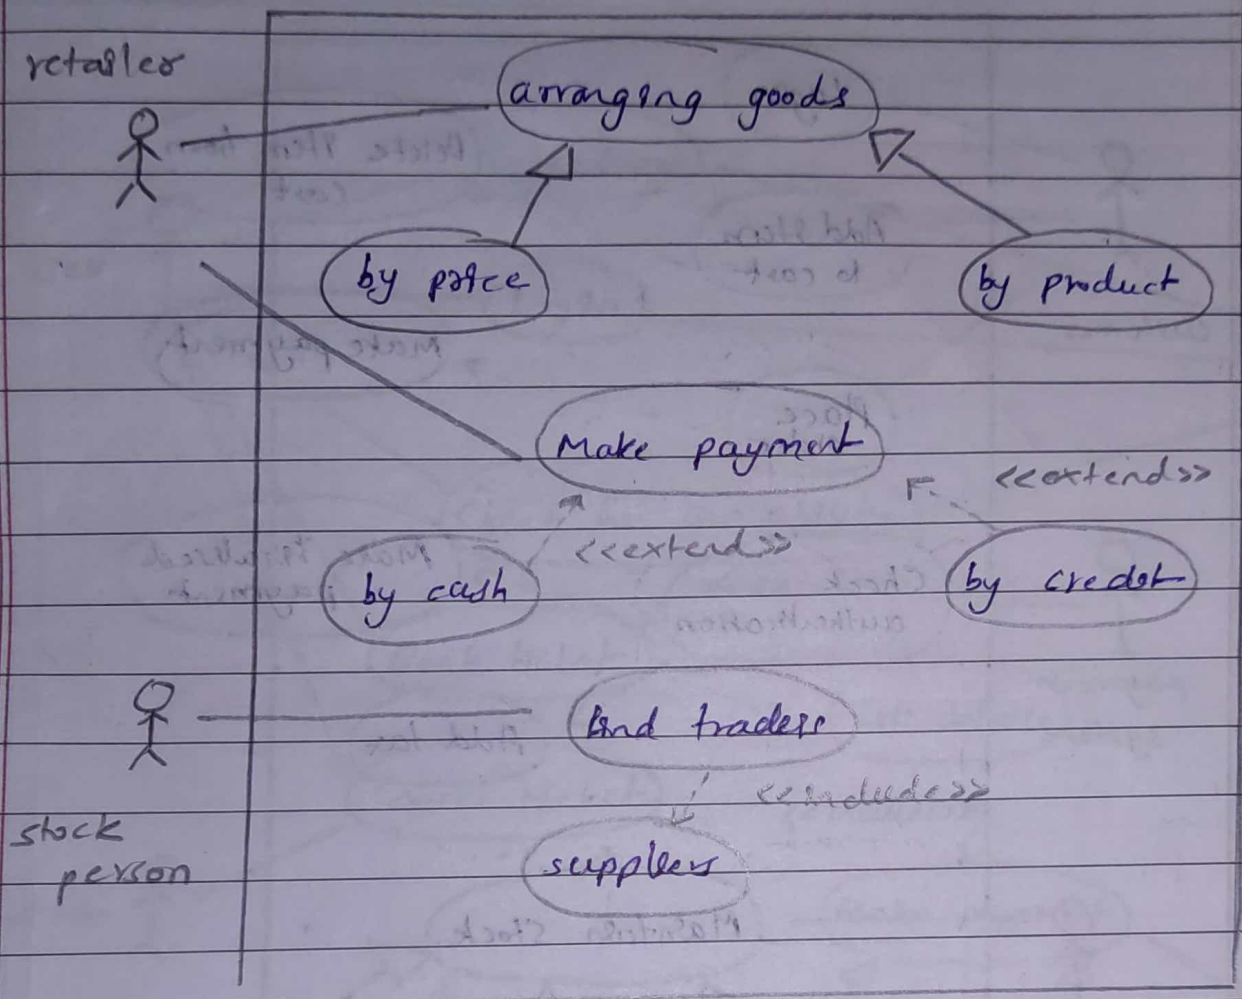 retailer
arranging goods
by price
by product
Make payment
<<extend>>
<<extend>>
by cash
by credit
find traders
<<include>>
stock
person
suppliers